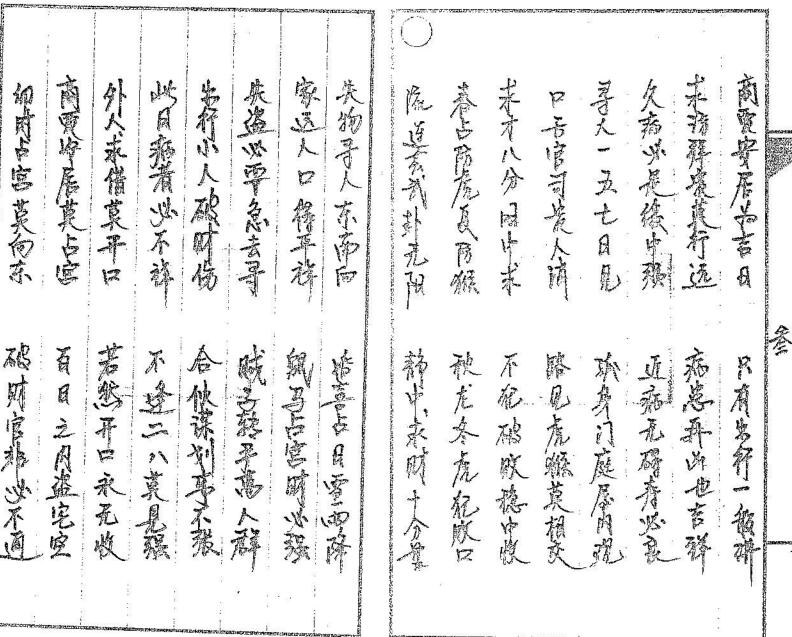 商贾安居为吉日 只有出行一般祥
求访群莫行远 病患再此也吉祥
久病必是缓中强 近病无碍寿必长
寻人一五七日见 孤身门庭屋内现
口舌官司贵人消 路见虎猴莫相交
求才八分闹中求 不犯破败稳中收
春占防虎夏防猴 秋龙冬虎犯败口
流连玄武卦无阳 静中求财十分
失物寻人东南向 婚喜占日雷雨降
家运人口得平祥 鼠马占宫财必强
失盗必急去寻 贼子转手万人群
出行小人破财伤 合伙谋划事不张
此日病者必不祥 不逢二八莫见强
外人求借莫开口 若然开口永无收
商贾居莫占宫 百日之内盗宅空
卯时占宫莫向东 破财官非必不通
叁